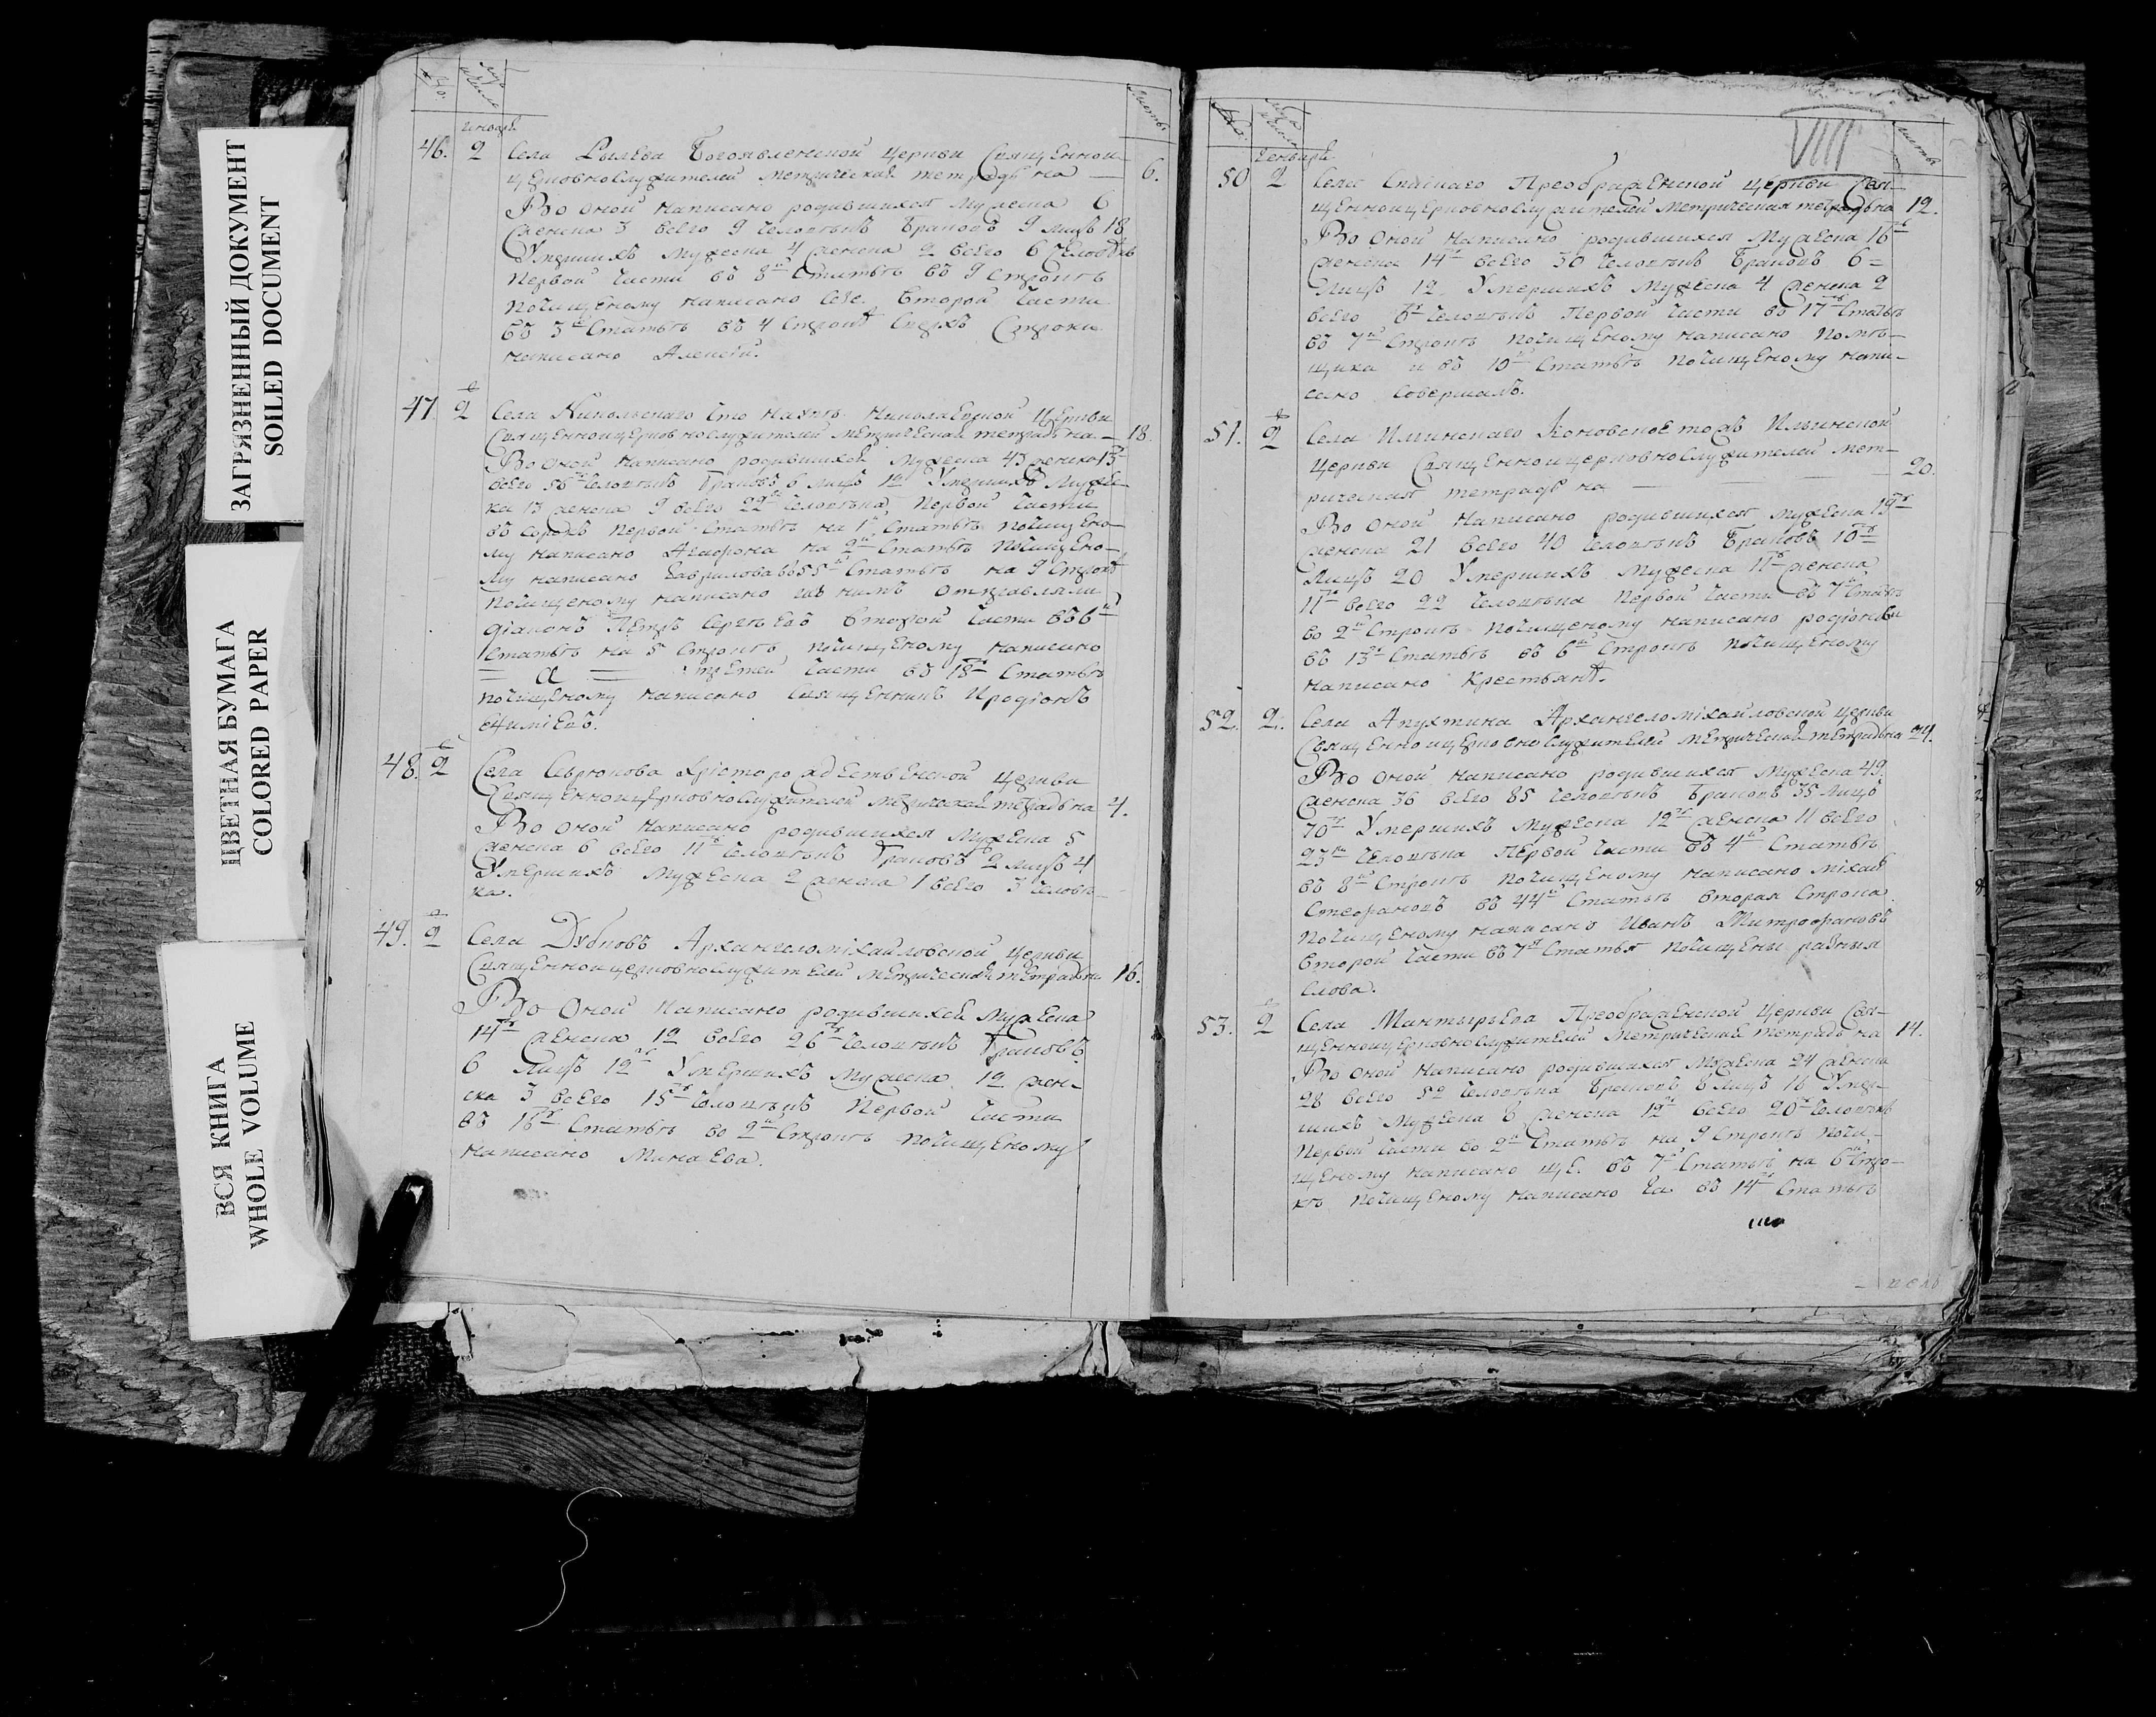 ЗАГРЯЗНЕННЫЙ ДОКУМЕНТ
SOILED DOCUMENT
ЦВЕТНАЯ БУМАГА
COLORED PAPER
ВСЯ КНИГА
WHOLE VOLUME
генварй
46. 2 Села Рылѣва Богоявленской церкви Священнои
церковнослужителей метрическая тетрадь на — 6.
Во оной написано родившихся мужеска 6
женска 3 всего 9 человѣкъ браковъ 9 лицъ 18
Умершихъ мужеска 4 женска 2 всего 6 человѣкъ
Первой части въ 8й Статьѣ въ 9 строкѣ
почищеному написано Второй части
въ 3й Статьѣ въ 4 строкѣ сверхъ строки
написано Алексѣй.
47. 2 Села Никольскаго что на Николаевской церкви
Священноицерковнослужителей метрическая тетрадь на — 18.
Во оной написано родившихся мужеска 43 женска 13
всего 56 человѣкъ браковъ 6 лицъ 12 Умершихъ мужес-
ка 13 женска 9 всего 22 человѣка, Первой части
въ сорокъ первой Статьѣ на 1й Статьѣ почищено-
му написано на 2й Статьѣ почищено-
му написано Гаврилова въ 55й Статьѣ на 9 строкѣ
почищеному написано съ нимъ отправляли
діаконъ Петръ Сергѣевъ Второй части въ 6й
Статьѣ на 5 строкѣ, почищеному написано
— а — третей части въ 18й Статьѣ
почищеному написано священникъ Иродіонъ

48. 2 Села Севрюкова Христорождественской церкви
Священноицерковнослужителей метрическая тетрадь на 4.
Во оной написано родившихся мужеска 5
женска 6 всего 11ть человѣкъ браковъ 2 лицъ 4
Умершихъ мужеска 2 женска 1 всего 3 человѣ-
ка.
49. 2 Села Дубковъ Архангеломіхайловской церкви
Священноицерковнослужителей метрическая тетрадь на 16.
Во оной написано родившихся мужеска
14ть женска 12 всего 26ть человѣкъ браковъ
6 лицъ 12ть Умершихъ мужеска 12 жен-
ска 3 всего 15ть человѣкъ Первой части
въ 16й Статьѣ во 2й Строкѣ почищеному
написано Минаева.
VIII
генварй
50 2 Села Спаскаго Преображенской церкви Свя-
щенноицерковнослужителей метрическая тетрадь на 12.
Во оной написано родившихся мужеска 16ть
женска 14ть всего 30 человѣкъ браковъ 6 =
лицъ 12 Умершихъ мужеска 4 женска 2
всего 6ть человѣкъ Первой части въ 17й Статьѣ
въ 7й строкѣ почищеному написано помѣ-
щика и въ 10й Статьѣ почищеному напи-
сано совершалъ.
51. 2 Села Илинскаго Ильинской
церкви Священноицерковнослужителей мет-
рическая тетрадь на — — 20.
Во оной написано родившихся мужеска 19ть
женска 21 всего 40 человѣкъ браковъ 10ть
лицъ 20 Умершихъ мужеска 11ть женска
11ть всего 22 человѣка Первой части въ 7й Статьѣ
во 2й Строкѣ почищеному написано
въ 13й Статьѣ въ 6й Строкѣ почищеному
написано крестьянѣ.
52. 2. Села Апухтина Архангеломіхайловской церкви
Священноицерковнослужителей метрическая тетрадь на 24.
Во оной написано родившихся мужеска 49.
женска 36 всего 85 человѣкъ браковъ 35 лицъ
70ть Умершихъ мужеска 12ть женска 11 всего
23ри человѣка Первой части въ 4й Статьѣ
въ 8й Строкѣ почищеному написано Міхаил
Стефановъ въ 44й Статьѣ вторая Строка
почищеному написано Иванъ Митрофановъ
Второй части въ 7й Статья почищены разныя
слова.
53. 2 Села Мантырѣва Преображенской церкви Свя-
щенноицерковнослужителей метрическая тетрадь на 14.
Во оной написано родившихся мужеска 24 женска
28 всего 52 человѣка браковъ 8 лицъ 16 Умер-
шихъ мужеска 8 женска 12ть всего 20ть человѣкъ
Первой части во 2й Статьѣ на 9 Строкѣ почи-
щеному написано ще. въ 7й Статьѣ на 6й Стро-
кѣ почищеному написано га въ 14й Статьѣ